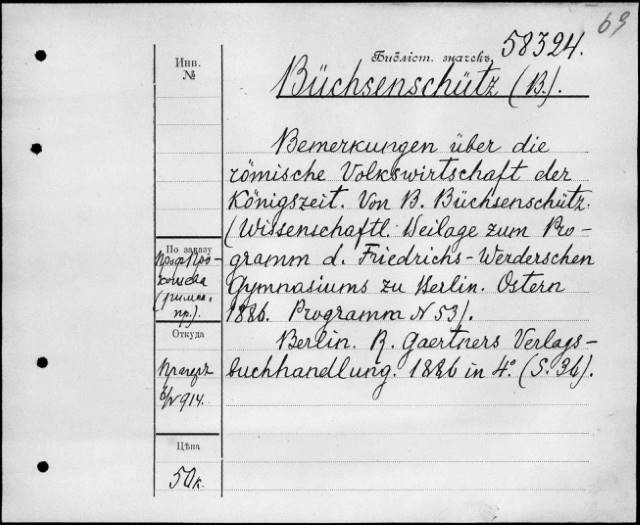 69
58324.
Библіот. значекъ
Инв.
№
Büchsenschütz (B.).
Bemerkungen über die
römische Volkswirtschaft der
Königszeit. Von B. Büchsenschütz.
(Wissenschaftl. Beilage zum Pro-
gramm d. Friedrichs-Werderschen
Gymnasiums zu Berlin. Ostern
1886. Programm N 53).
Berlin. R. Gaertners Verlags-
buchhandlung. 1886 in 4°. (S. 36).
По заказу
Проф. По-
(римск.
пр.).
Откуда
914.
Цѣна
50к.